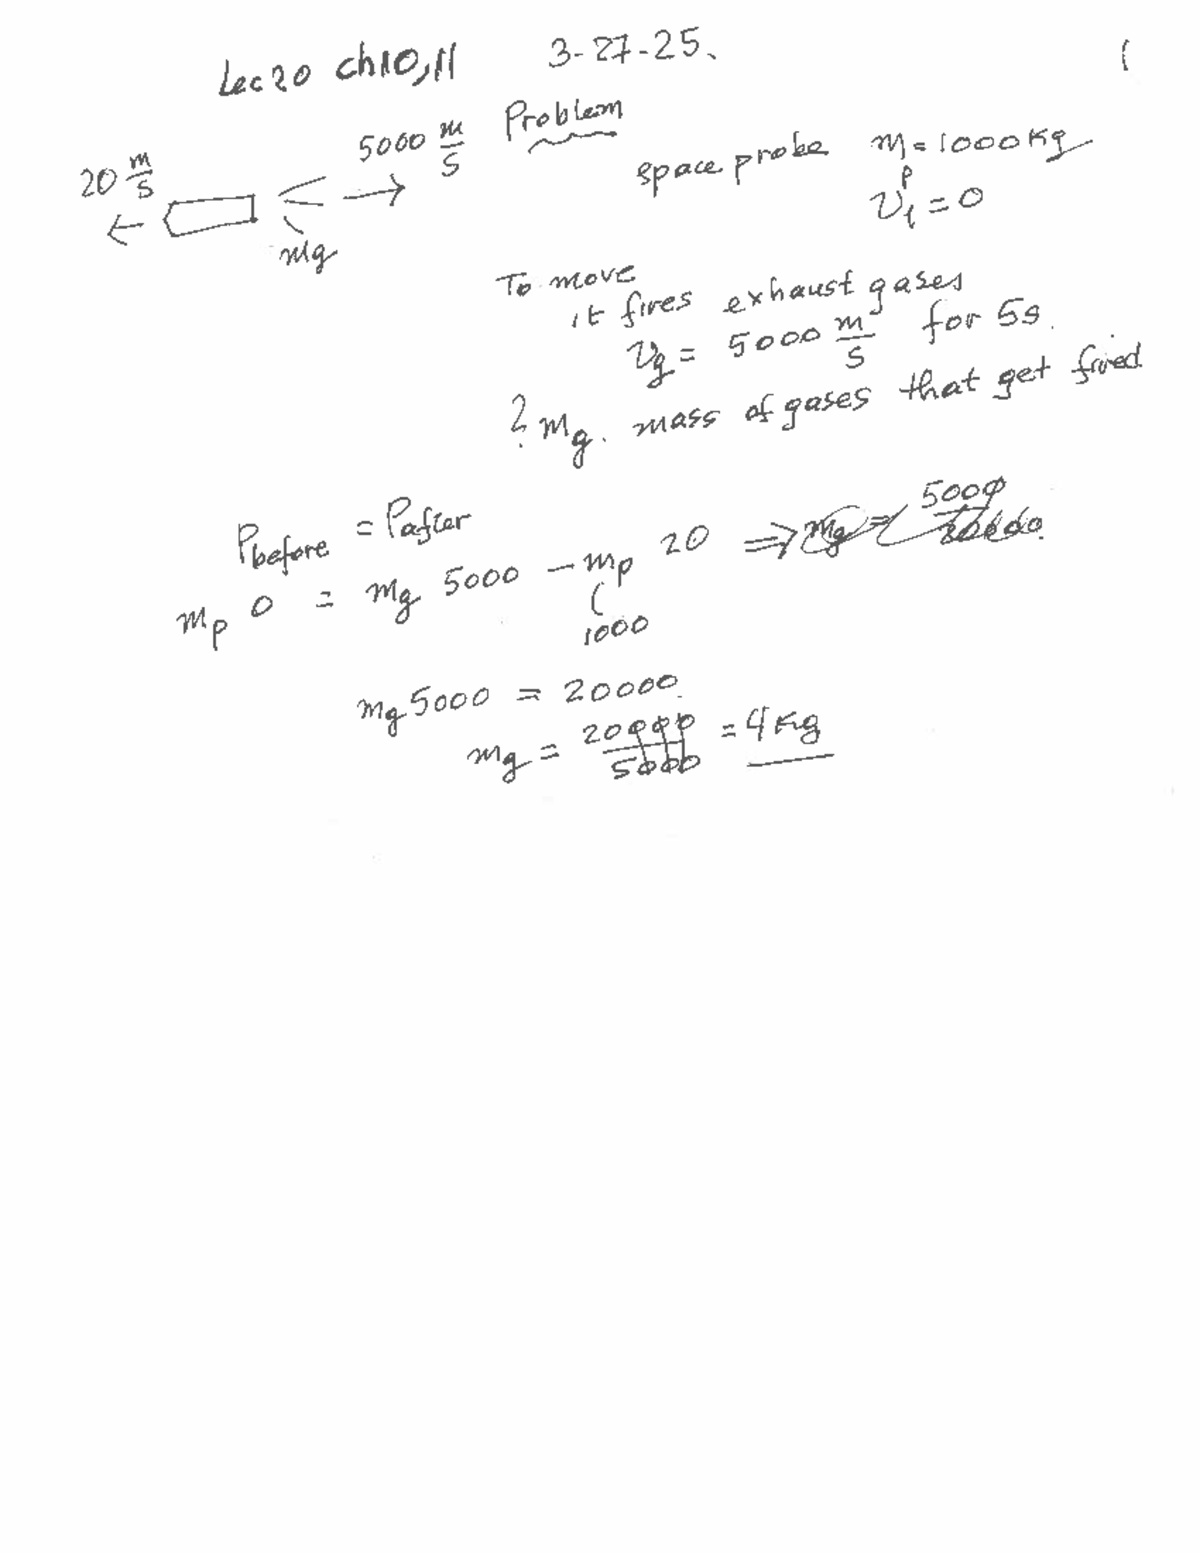 Lec 20 ch10,11 3-27-25. 1
20 m/s 5000 m/s Problem
space probe m_p = 1000 kg
v_i = 0
mg
To move
it fires exhaust gases
v_g = 5000 m/s for 5s.
? m_g. mass of gases that get fired
P_before = P_after
m_p 0 = m_g 5000 - m_p 20 => m_g = 5000/20000.
1000
m_g 5000 = 20000.
m_g = 20000/5000 = 4 kg